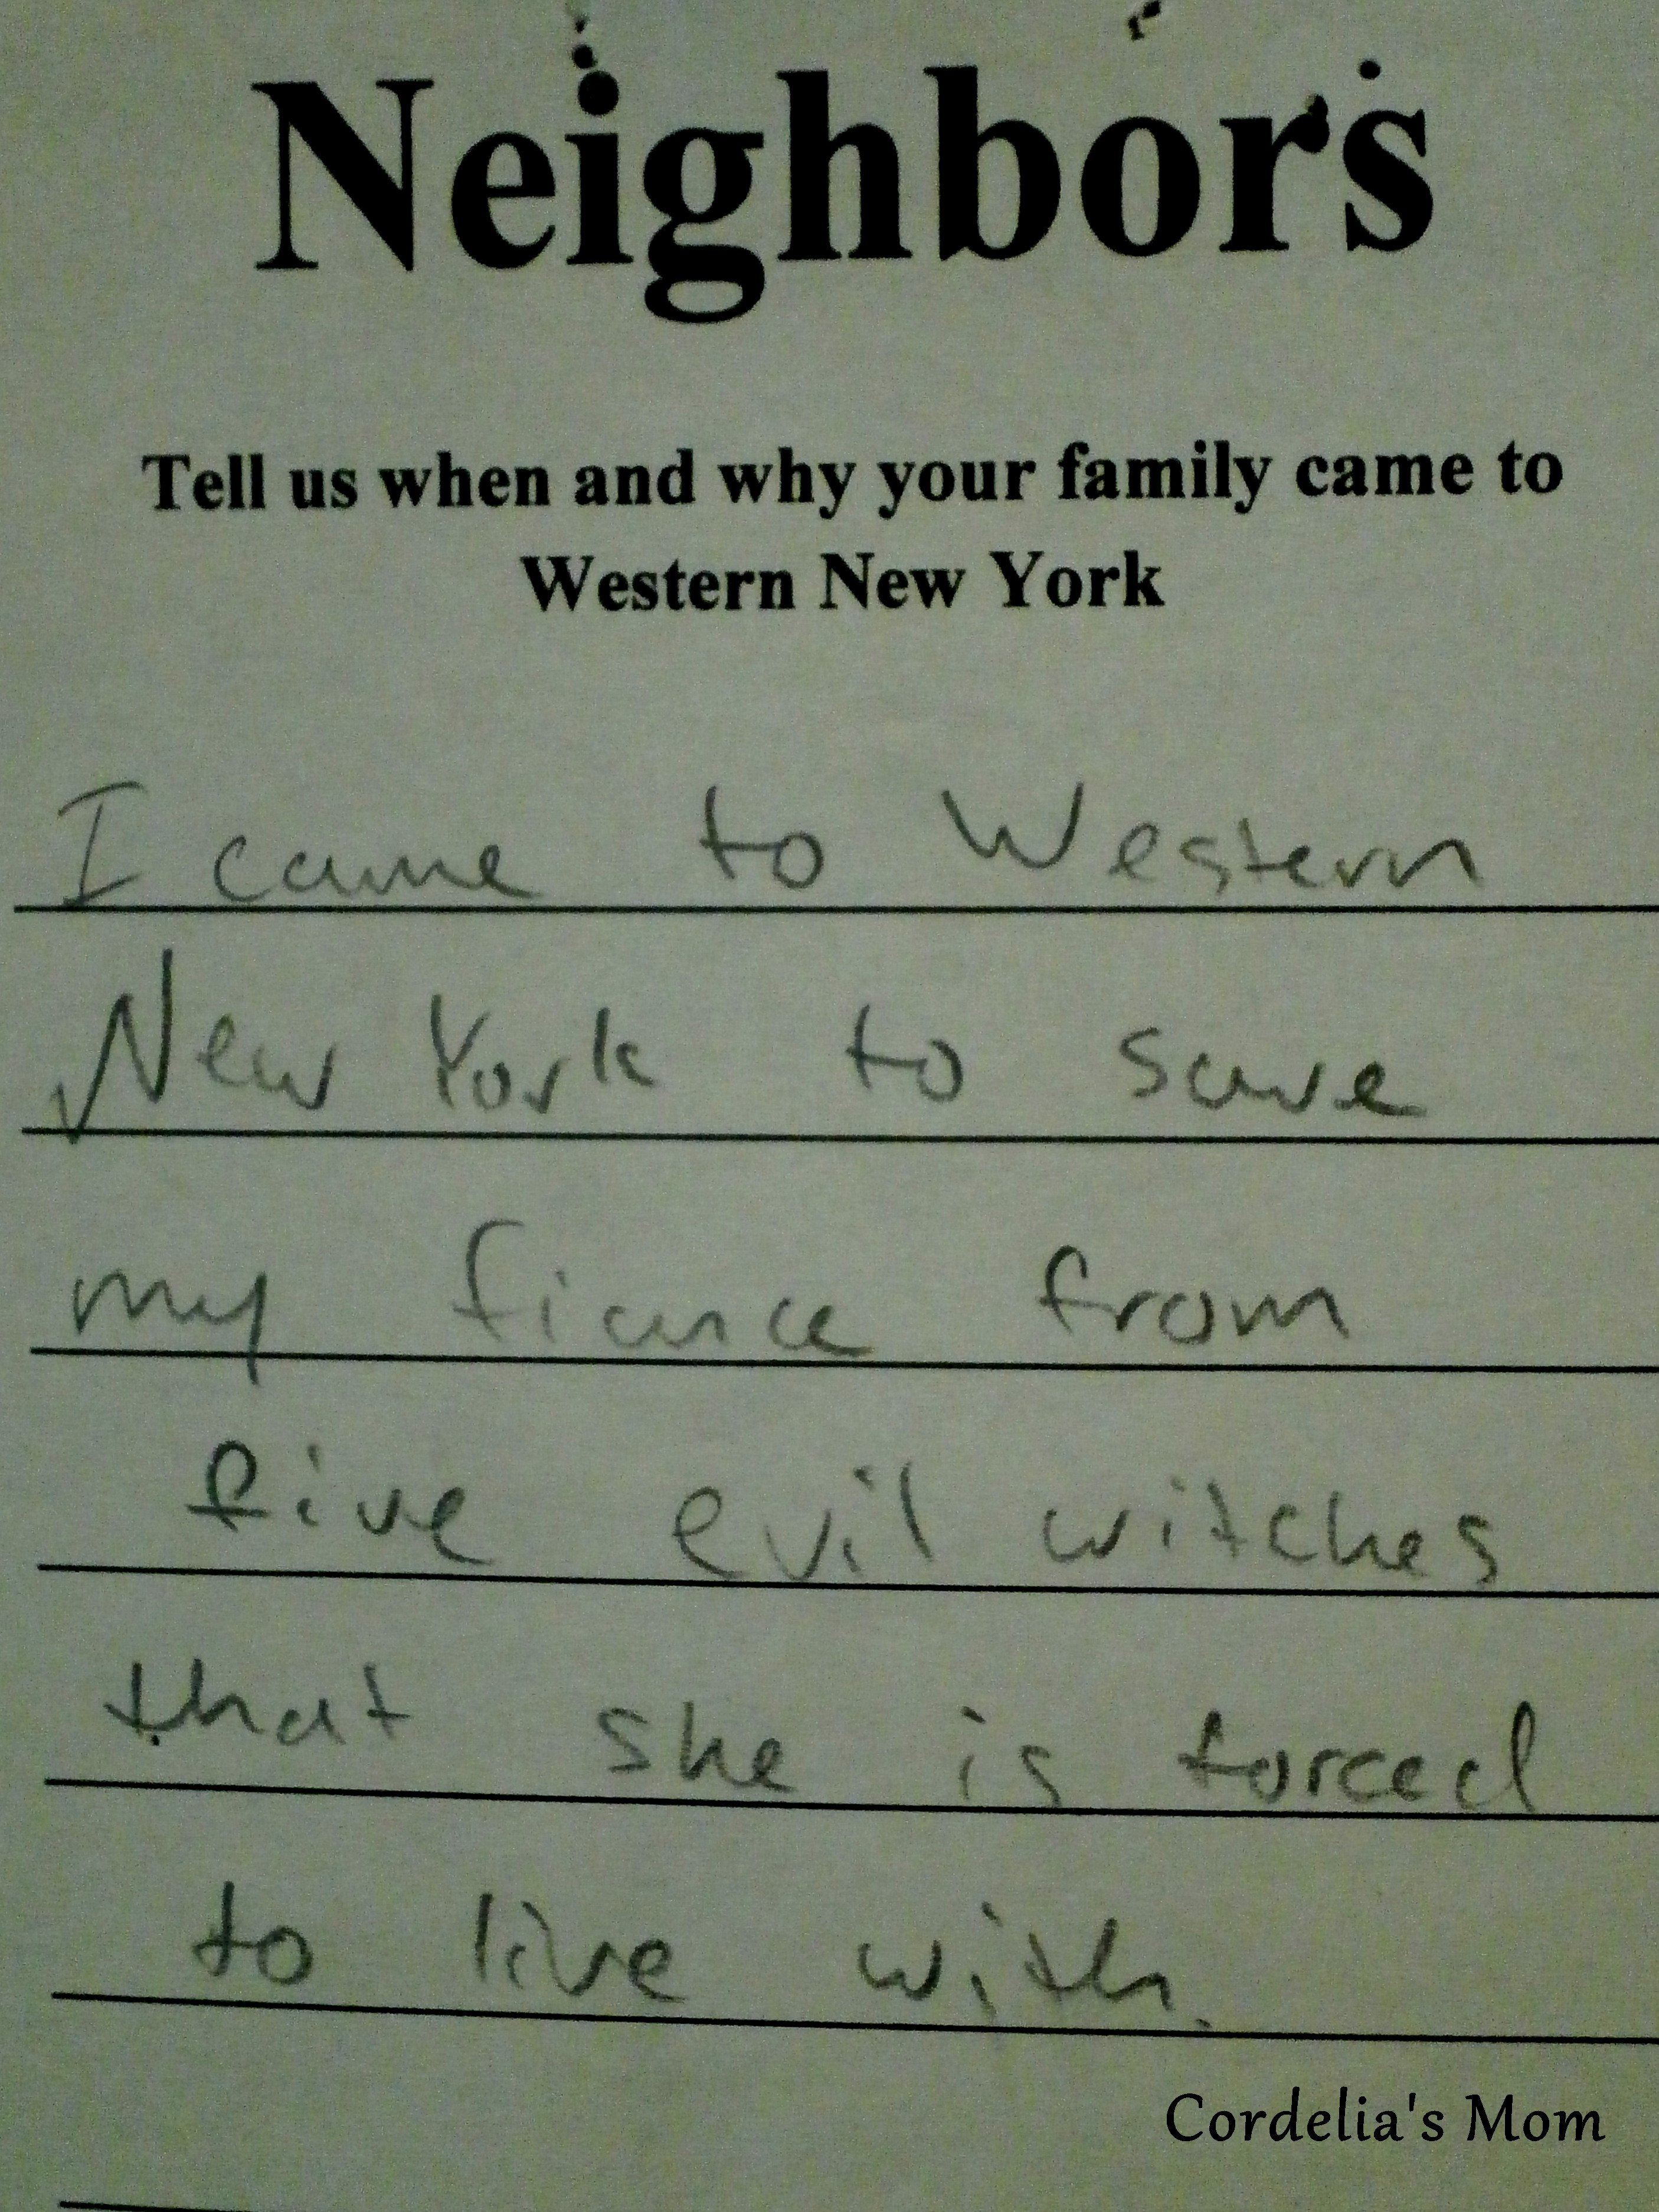 Neighbors
Tell us when and why your family came to
Western New York
I came to Western
New York to save
my fiance from
five evil witches
that she is forced
to live with.
Cordelia's Mom